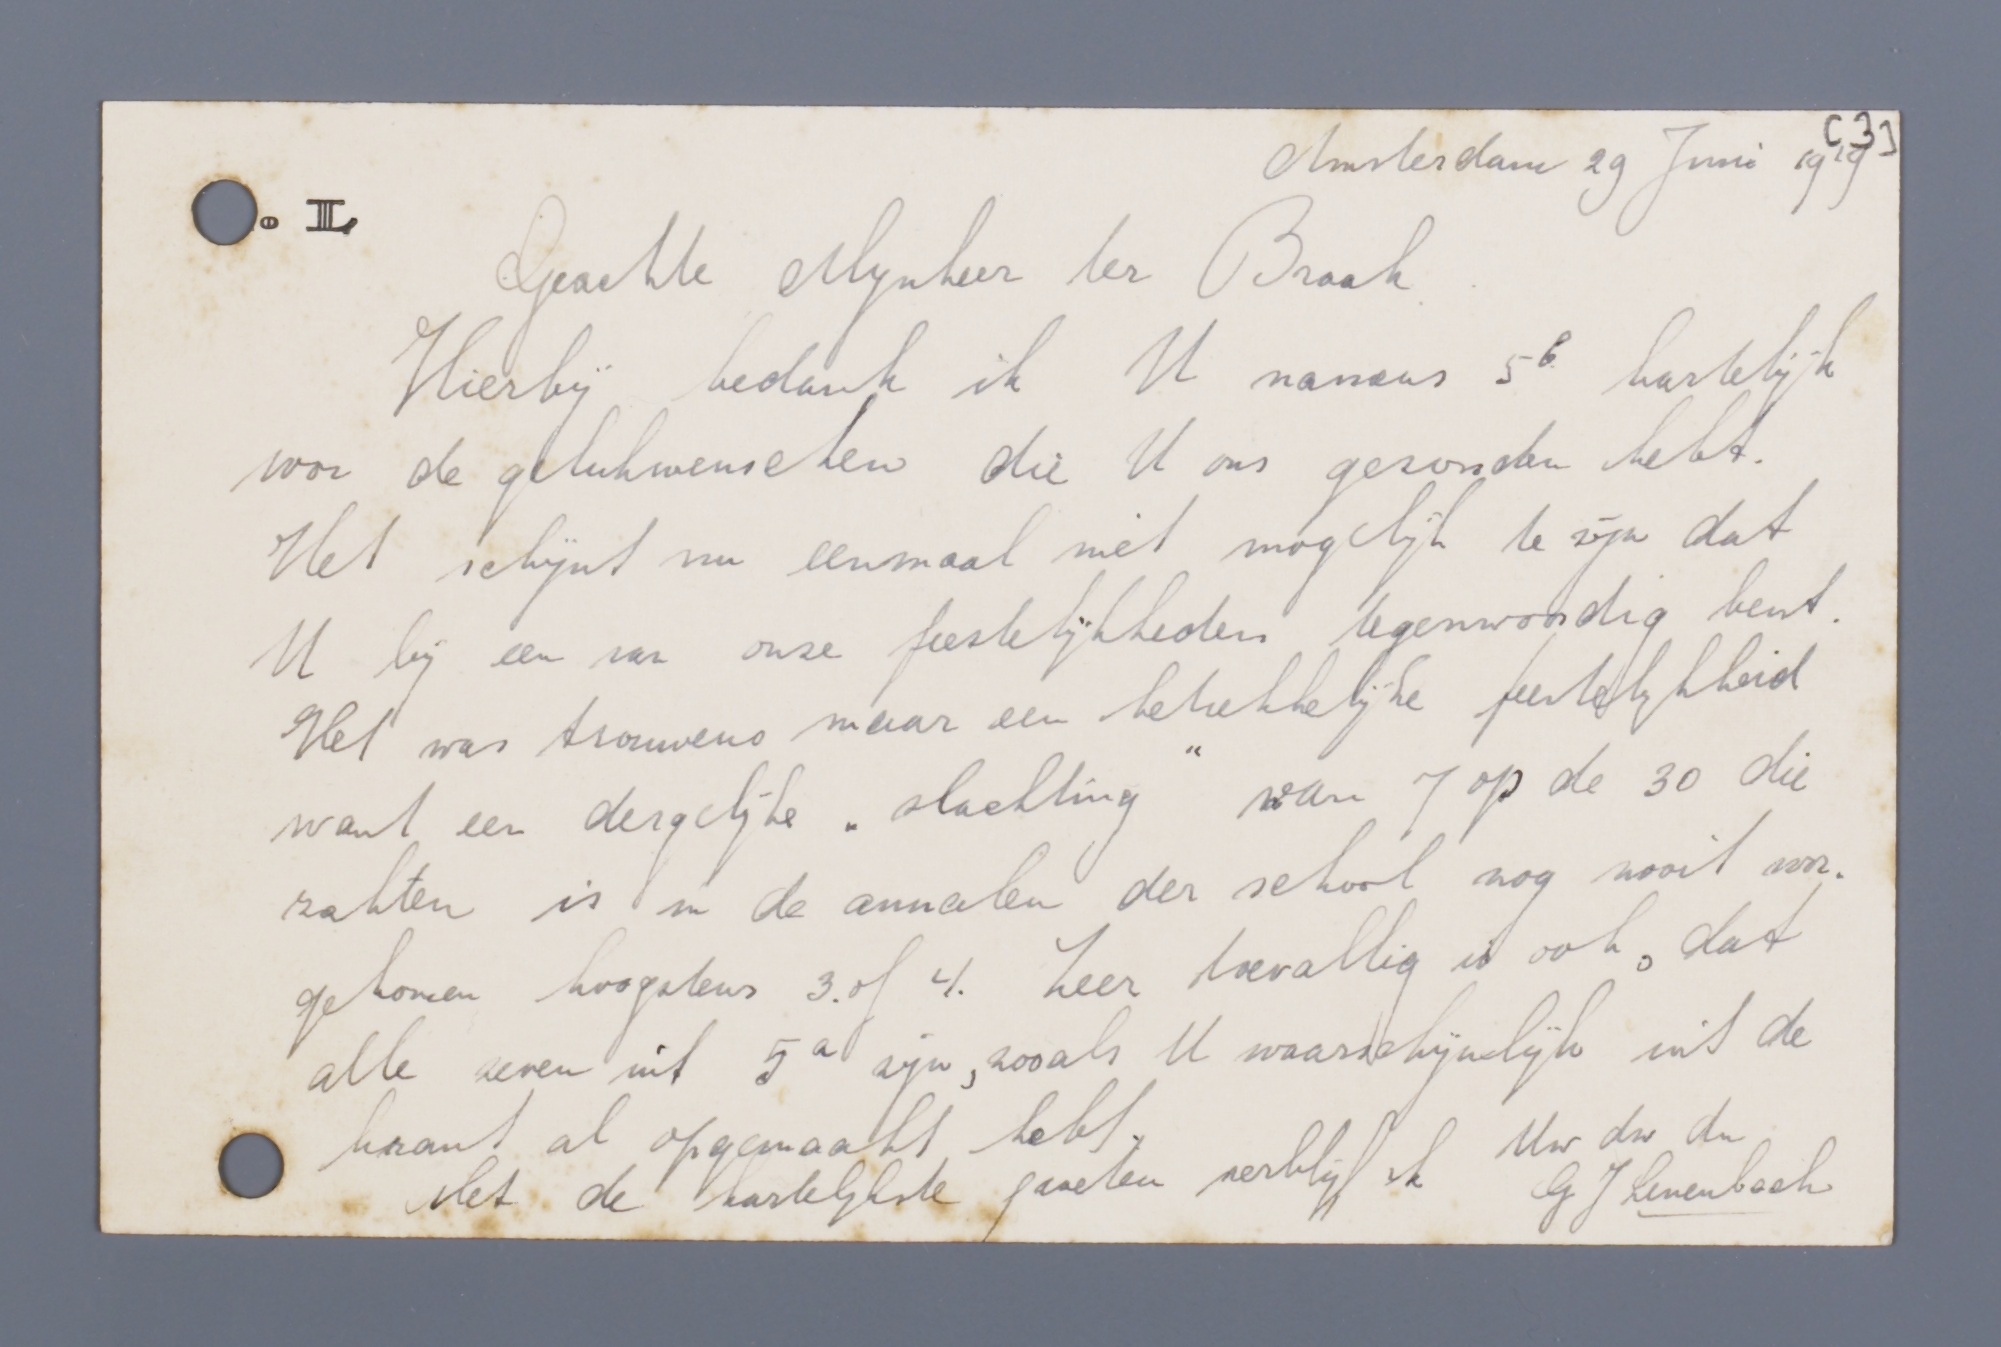 [3]
Amsterdam 29 Juni 1919
. L
Geachte Mynheer ter Braak
Hierbij bedank ik U namens 5b hartelijk
voor de gelukwenschen die U ons gezonden hebt.
Het schijnt nu eenmaal niet mogelijk te zijn dat
U bij een van onze feestelijkheden tegenwoordig bent.
Het was trouwens maar een betrekkelijke feestelijkheid
want een dergelijke „slachting“ van 7 op de 30 die
zakten is in de annalen der school nog nooit voor-
gekomen hoogstens 3 of 4. Zeer toevallig is ook, dat
alle zeven uit 5a zijn, zooals U waarschijnlijk uit de
krant al opgemaakt hebt.
Met de hartelijkste groeten verblijf ik Uw dw dn
G J Levenbach